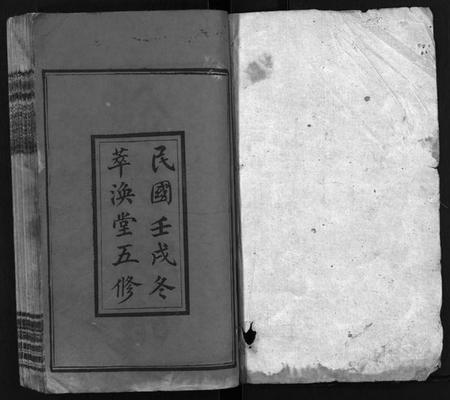 民國壬戌冬
萃渙堂五修